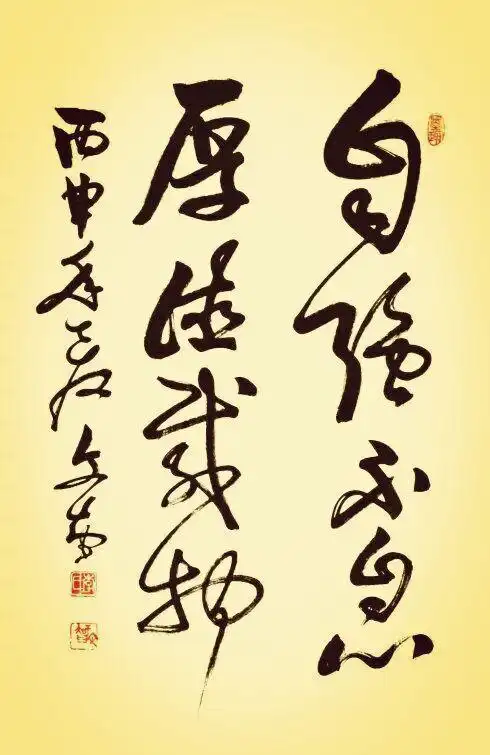 自强不息
厚德载物
丙申年 文